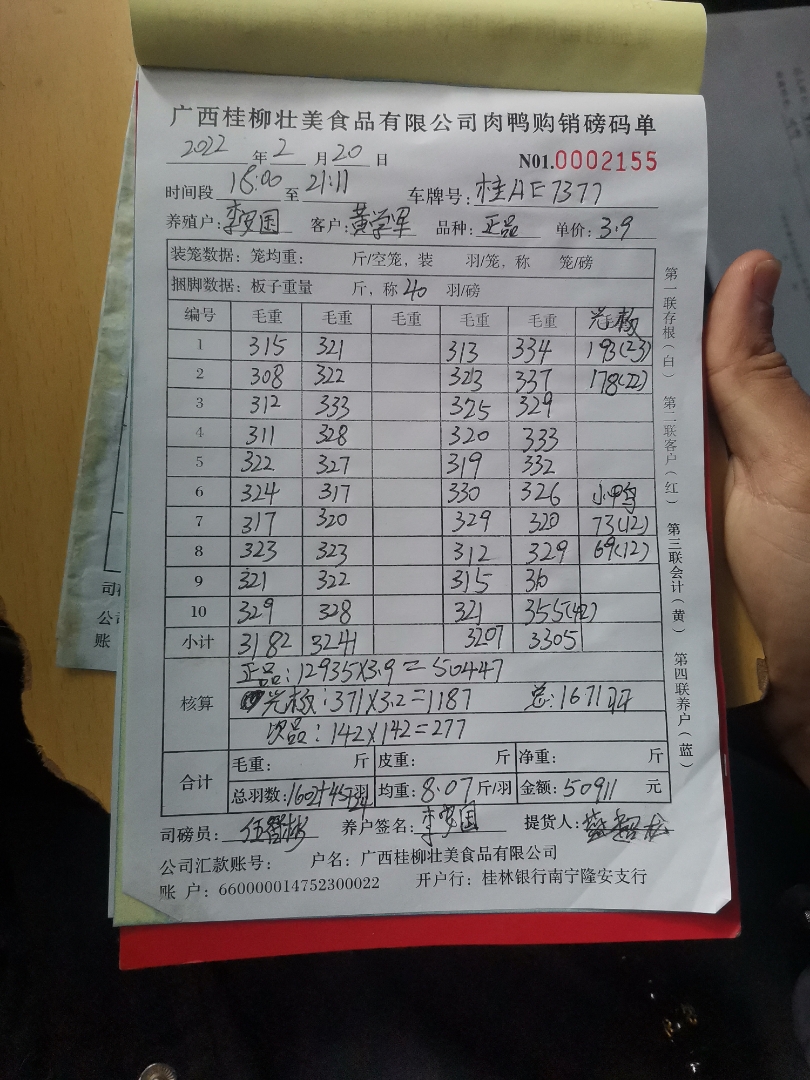 广西桂柳壮美食品有限公司肉鸭购销磅码单
2022 年 2 月 20 日 N01.0002155
时间段 18:00 至 21:11 车牌号: 桂AE7377
养殖户: 李罗国 客户: 黄学军 品种: 正品 单价: 3.9
装笼数据: 笼均重: 斤/空笼, 装 羽/笼, 称 笼/磅
捆脚数据: 板子重量 斤, 称 40 羽/磅
编号 毛重 毛重 毛重 毛重 毛重
1 315 321 313 334 193(23)
2 308 322 323 337 178(22)
3 312 333 325 329
4 311 328 320 333
5 322 327 319 332
6 324 317 330 326 小鸭
7 317 320 329 320 73(12)
8 323 323 312 329 69(12)
9 321 322 315
10 329 328 321 355(42)
小计 3182 3241 3207 3305
核算
正品: 12935×3.9=50447
371×3.2=1187
次品: 142×142=277
合计
毛重: 斤 皮重: 斤 净重: 斤
总羽数: 均重: 8.07 斤/羽 金额: 50911 元
司磅员: 养户签名: 李罗国 提货人:
公司汇款账号: 户名: 广西桂柳壮美食品有限公司
账 户: 660000014752300022 开户行: 桂林银行南宁隆安支行
第一联存根(白) 第二联客户(红) 第三联会计(黄) 第四联养户(蓝)
司
公司
账